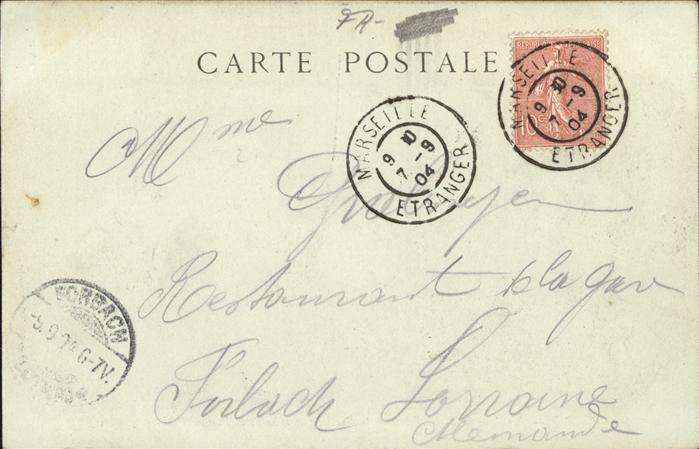 FR-
CARTE POSTALE
MARSEILLE
9 7-9 04
ETRANGER
MARSEILLE
9 7-9 04
ETRANGER
10
Mme
Restaurant de la gare
Forbach Lorraine
Allemande
FORBACH
-5.9.04 6-7V.